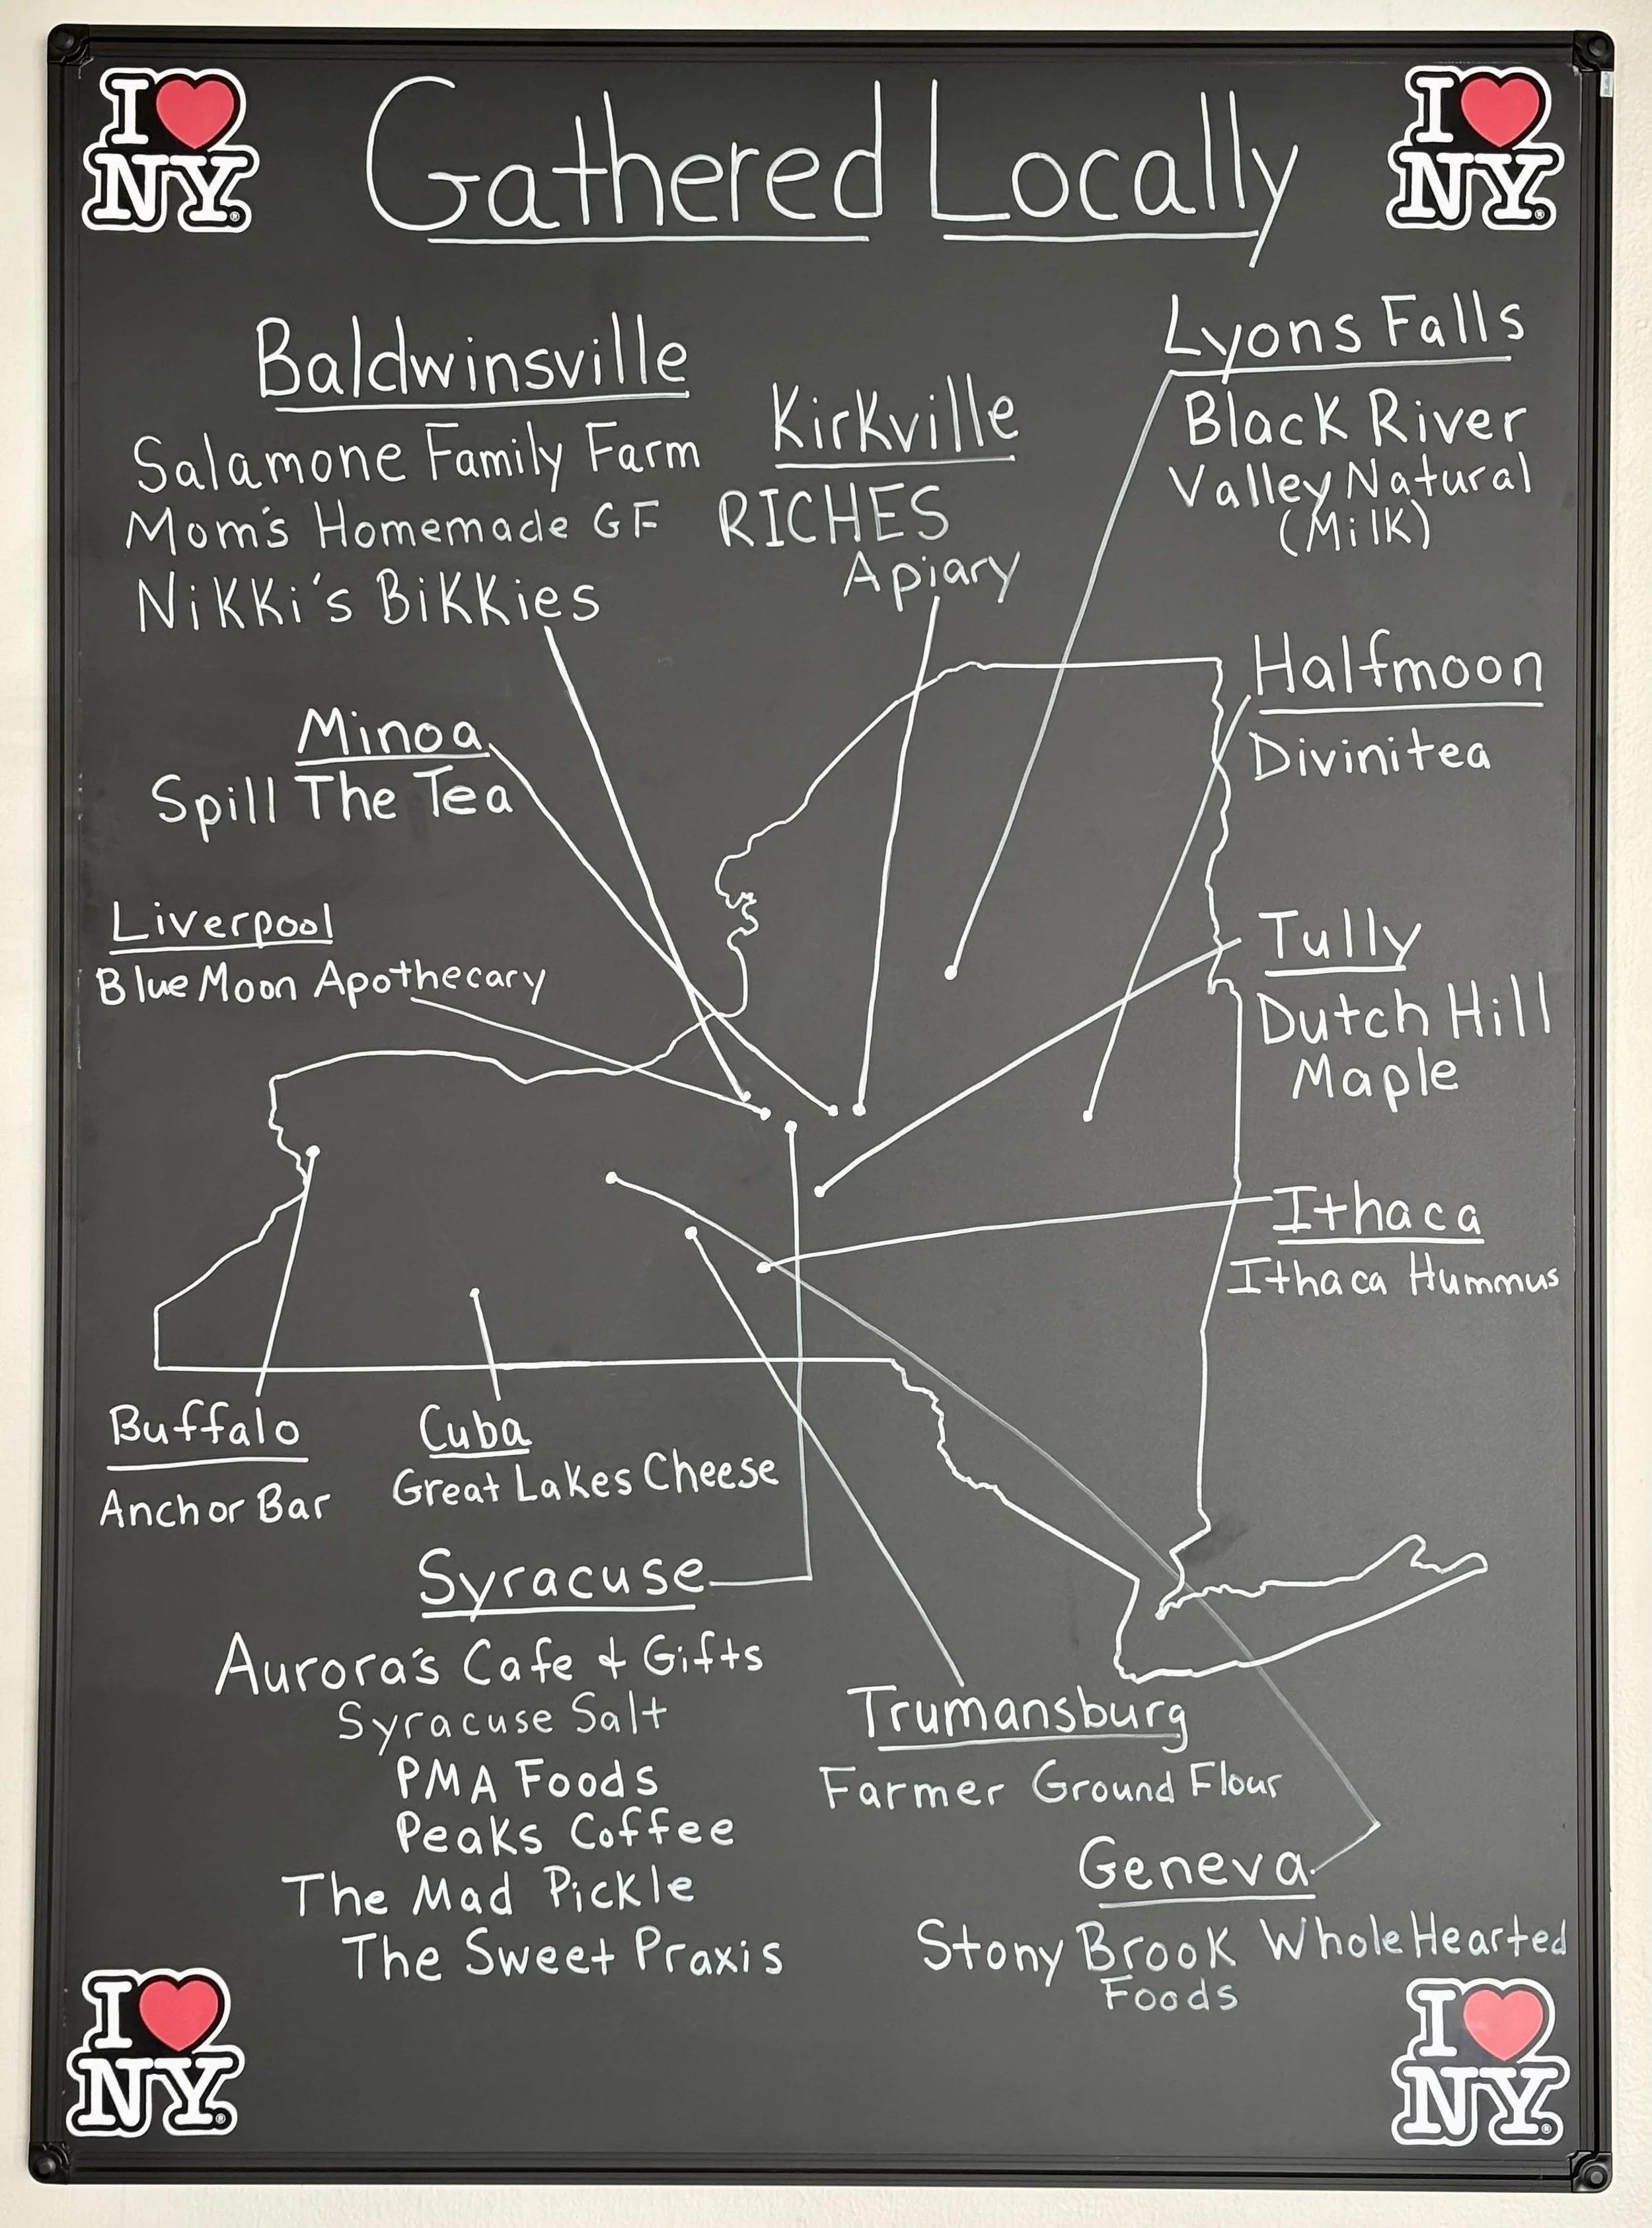 I NY®
I NY®
Gathered Locally
Baldwinsville
Salamone Family Farm
Mom's Homemade GF
Nikki's Bikkies
Kirkville
RICHES
Apiary
Lyons Falls
Black River
Valley Natural
(Milk)
Minoa
Spill The Tea
Halfmoon
Divinitea
Liverpool
Blue Moon Apothecary
Tully
Dutch Hill
Maple
Ithaca
Ithaca Hummus
Buffalo
Anchor Bar
Cuba
Great Lakes Cheese
Syracuse
Aurora's Cafe & Gifts
Syracuse Salt
PMA Foods
Peaks Coffee
The Mad Pickle
The Sweet Praxis
Trumansburg
Farmer Ground Flour
Geneva
Stony Brook WholeHearted
Foods
I NY®
I NY®